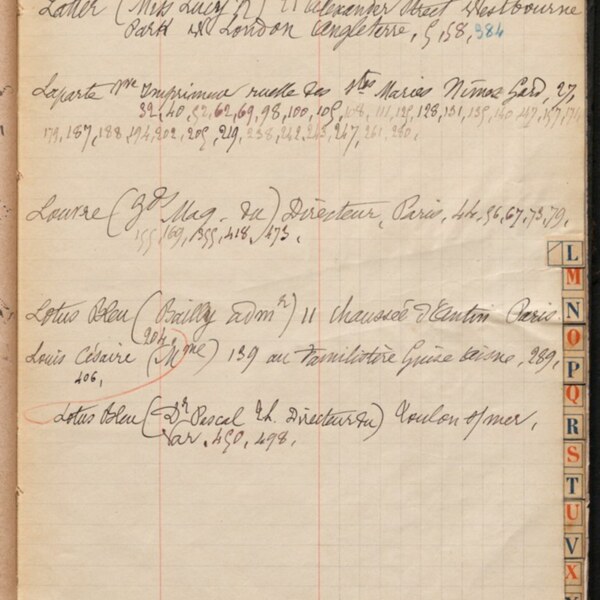 Latter (Miss Lucy R) 11 Alexander Street Westbourne
Park W London Angleterre, 5, 58, 384
Laporte Imprimeur ruelle des Stes Maries Nîmes Gard, 27,
32, 40, 52, 62, 69, 98, 100, 105, 108, 111, 125, 128, 131, 135, 140, 147, 157,
179, 187, 188, 194, 202, 205, 219, 238, 242, 243, 247, 261, 280,
Louvre (Gds Mag. du) Directeur, Paris, 44, 56, 67, 73, 79,
155, 169, 355, 418, 473,
Lotus Bleu (Bailly admr) 11 chaussée d'Antin Paris
204,
Louis Césaire (Mme) 139 au Familistère Guise Aisne, 289,
406,
Lotus Bleu (Dr Pascal Th. Directeur du) Toulon s/mer,
Var, 450, 498,
L
M
N
O
P
Q
R
S
T
U
V
X